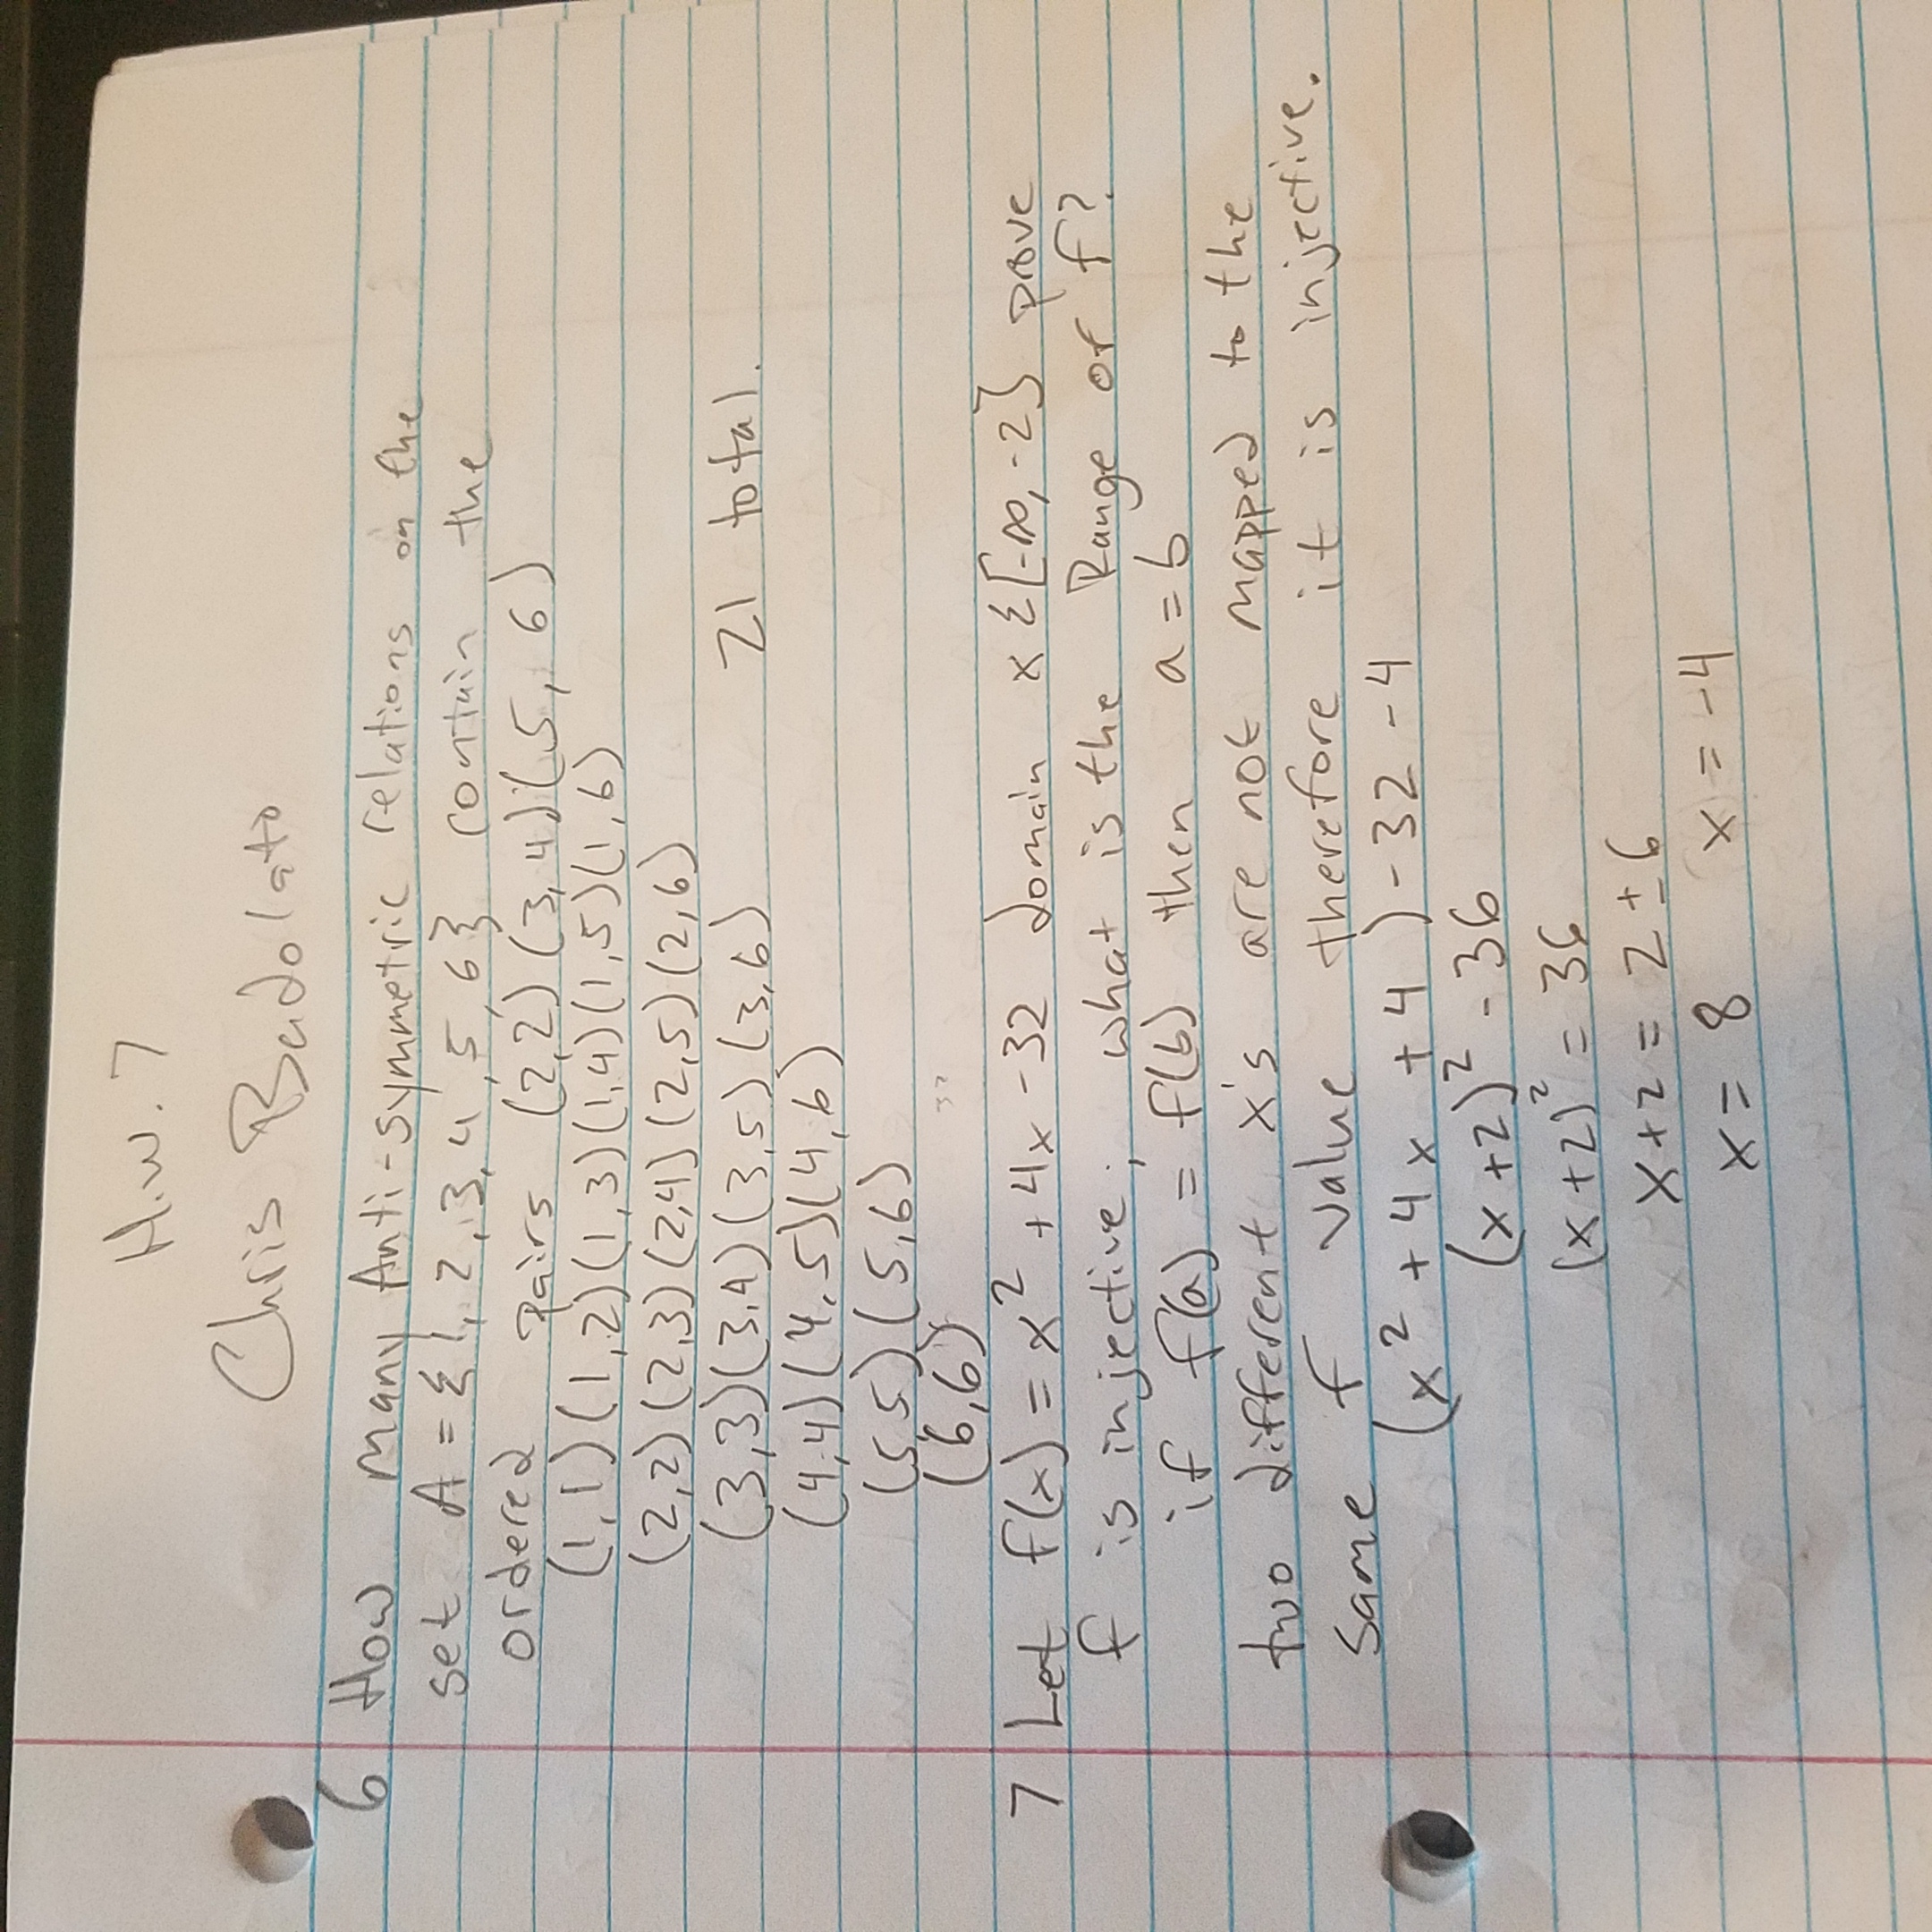 H.W. 7
Chris Badolato
6 How many Anti-symmetric relations on the
set A = {1, 2, 3, 4, 5, 6} contain the
ordered pairs (2,2) (3,4) (5, 6)
(1,1) (1,2) (1,3) (1,4) (1,5) (1,6)
(2,2) (2,3) (2,4) (2,5) (2,6)
(3,3) (3,4) (3,5) (3,6) 21 total.
(4,4) (4,5) (4,6)
(5,5) (5,6)
(6,6)
7 Let f(x) = x² + 4x - 32 domain x {[-∞, -2} prove
f is injective; what is the Range of f?
if f(a) = f(b) then a = b
two different x's are not mapped to the
same f value therefore it is injective.
(x² + 4x + 4) - 32 - 4
(x + 2)² - 36
(x + 2)² = 36
x + 2 = 2 ± 6
x = 8 x = -4